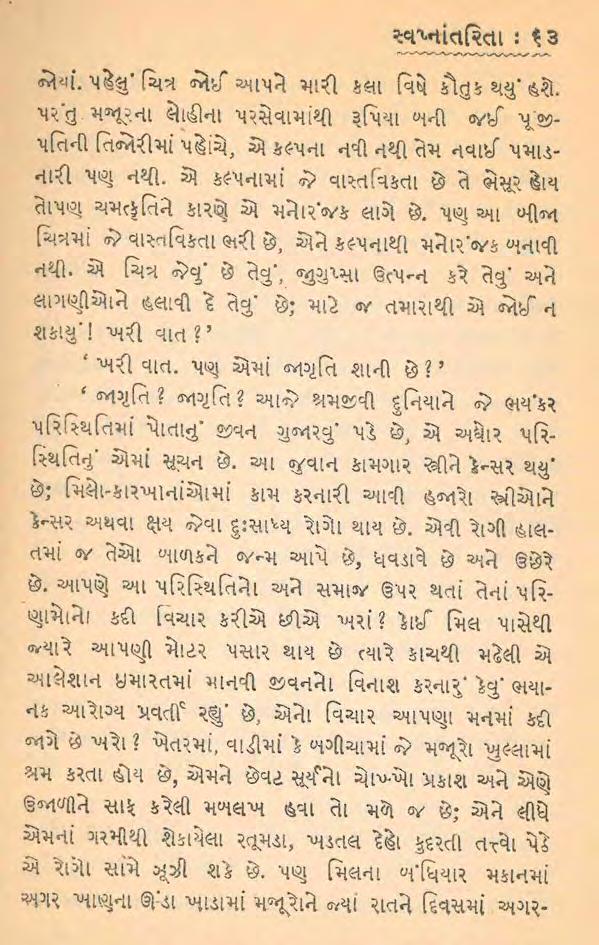 સ્વપ્નાંતરિતા : ૬૩
જોયાં. પહેલું ચિત્ર જોઈ આપને મારી કલા વિષે કૌતુક થયું હશે.
પરંતુ મજૂરના લોહીના પરસેવામાંથી રૂપિયા બની જઈ પૂંજી-
પતિની તિજોરીમાં પહોંચે, એ કલ્પના નવી નથી તેમ નવાઈ પમાડ-
નારી પણ નથી. એ કલ્પનામાં જે વાસ્તવિકતા છે તે ભેસૂર હોય
તોપણ ચમત્કૃતિને કારણે એ મનોરંજક લાગે છે. પણ આ બીજા
ચિત્રમાં જે વાસ્તવિકતા ભરી છે, એને કલ્પનાથી મનોરંજક બનાવી
નથી. એ ચિત્ર જેવું છે તેવું, જુગુપ્સા ઉત્પન્ન કરે તેવું અને
લાગણીઓને હલાવી દે તેવું છે; માટે જ તમારાથી એ જોઈ ન
શકાયું! ખરી વાત ?’
‘ ખરી વાત. પણ એમાં જાગૃતિ શાની છે ?’
‘ જાગૃતિ ? જાગૃતિ ? આજે શ્રમજીવી દુનિયાને જે ભયંકર
પરિસ્થિતિમાં પોતાનું જીવન ગુજારવું પડે છે, એ અઘોર પરિ-
સ્થિતિનું એમાં સૂચન છે. આ જુવાન કામગાર સ્ત્રીને કેન્સર થયું
છે; મિલો-કારખાનાંઓમાં કામ કરનારી આવી હજારો સ્ત્રીઓને
કેન્સર અથવા ક્ષય જેવા દુઃસાધ્ય રોગો થાય છે. એવી રોગી હાલ-
તમાં જ તેઓ બાળકને જન્મ આપે છે, ધવડાવે છે અને ઉછેરે
છે. આપણે આ પરિસ્થિતિનો અને સમાજ ઉપર થતાં તેનાં પરિ-
ણામોનો કદી વિચાર કરીએ છીએ ખરાં ? કોઈ મિલ પાસેથી
જ્યારે આપણી મોટર પસાર થાય છે ત્યારે કાચથી મઢેલી એ
આલેશાન ઇમારતમાં માનવી જીવનનો વિનાશ કરનારું કેવું ભયા-
નક આરોગ્ય પ્રવર્તી રહ્યું છે, એનો વિચાર આપણા મનમાં કદી
જાગે છે ખરો ? ખેતરમાં, વાડીમાં કે બગીચામાં જે મજૂરો ખુલ્લામાં
શ્રમ કરતા હોય છે, એમને છેવટ સૂર્યનો ચોખ્ખો પ્રકાશ અને એણે
ઉજાળીને સાફ કરેલી મબલખ હવા તો મળે જ છે; એને લીધે
એમનાં ગરમીથી શેકાયેલા રતૂમડા, ખડતલ દેહો કુદરતી તત્ત્વો પેઠે
એ રોગો સામે ઝૂઝી શકે છે. પણ મિલના બંધિયાર મકાનમાં
અગર ખાણના ઊંડા ખાડામાં મજૂરોને જ્યાં રાતને દિવસમાં અગર-